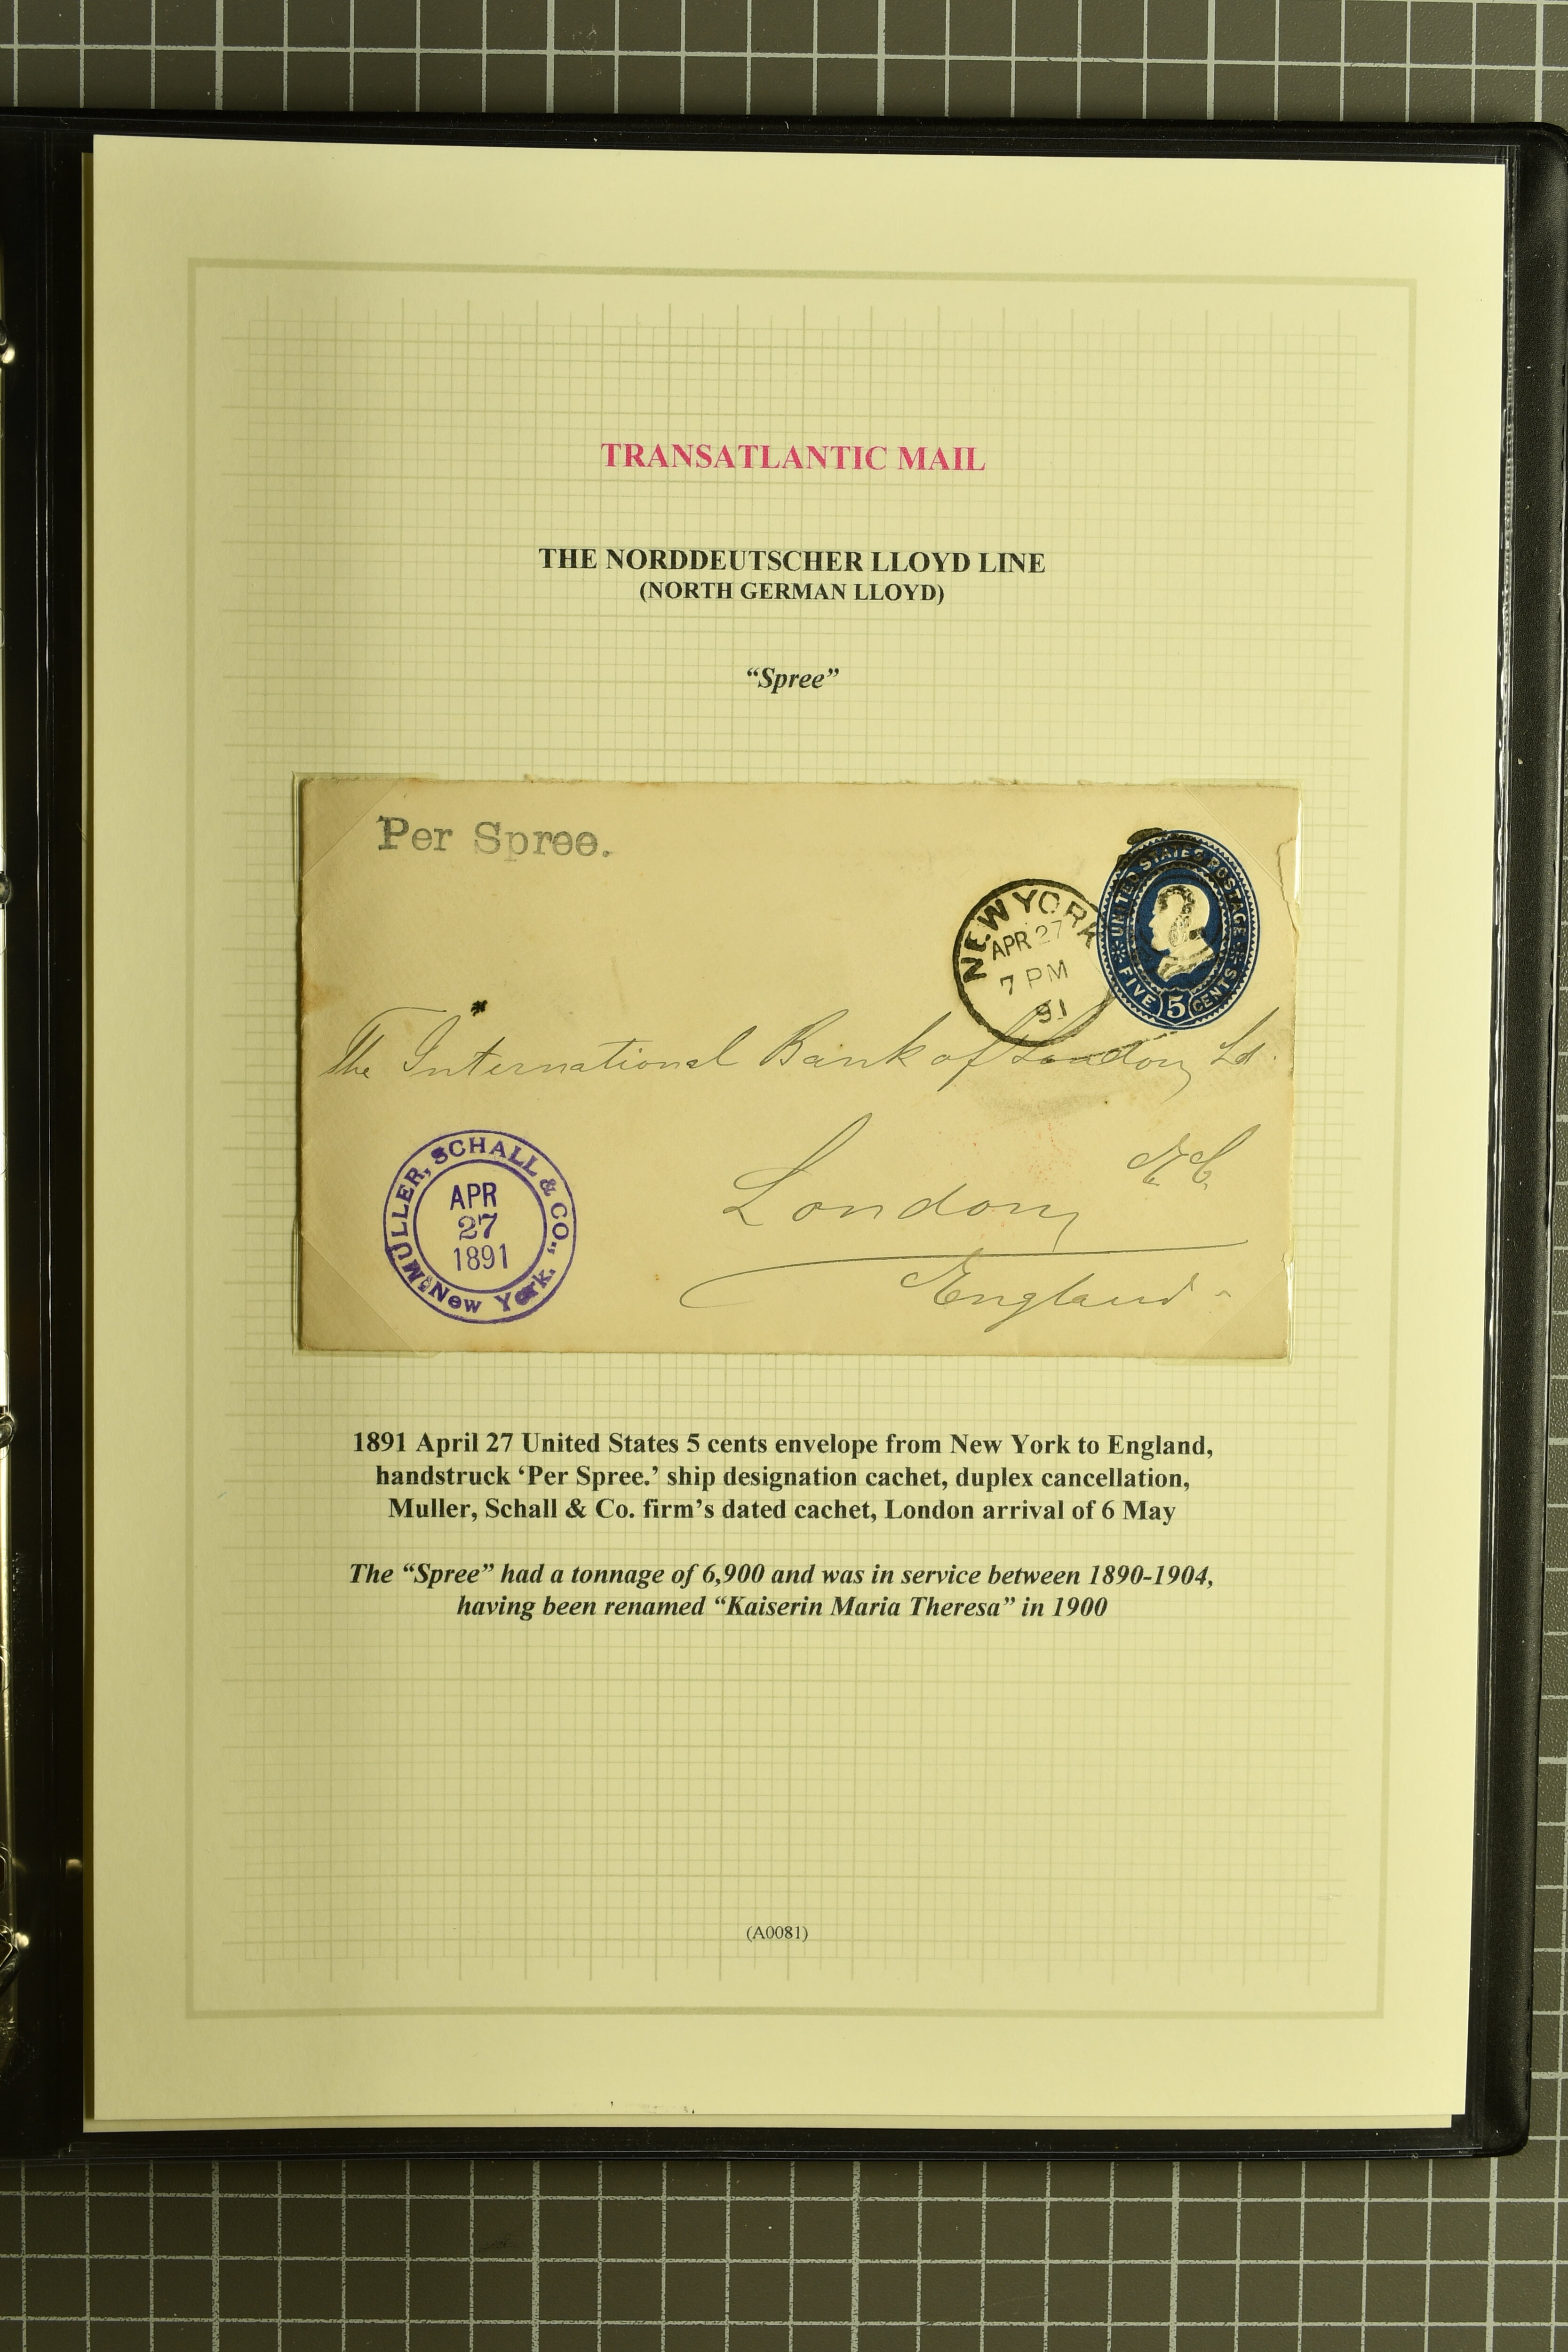 TRANSATLANTIC MAIL
THE NORDDEUTSCHER LLOYD LINE
(NORTH GERMAN LLOYD)
“Spree”
Per Spree.
NEW YORK
APR 27
7 PM
91
UNITED STATES POSTAGE
FIVE 5 CENTS
The International Bank of London Ld.
London E.C.
England
MULLER, SCHALL & CO.,
APR
27
1891
New York.
1891 April 27 United States 5 cents envelope from New York to England,
handstruck ‘Per Spree.’ ship designation cachet, duplex cancellation,
Muller, Schall & Co. firm’s dated cachet, London arrival of 6 May
The “Spree” had a tonnage of 6,900 and was in service between 1890-1904,
having been renamed “Kaiserin Maria Theresa” in 1900
(A0081)